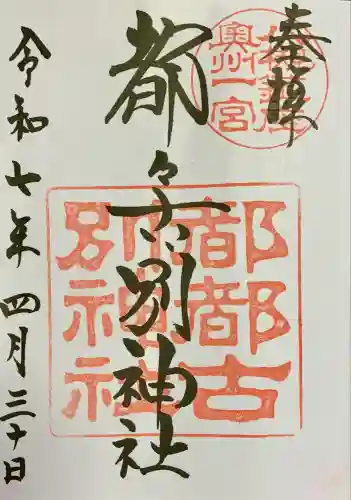 奉拝
奧州一宮
都々古別神社
都都古
別神社
令和七年四月三十日